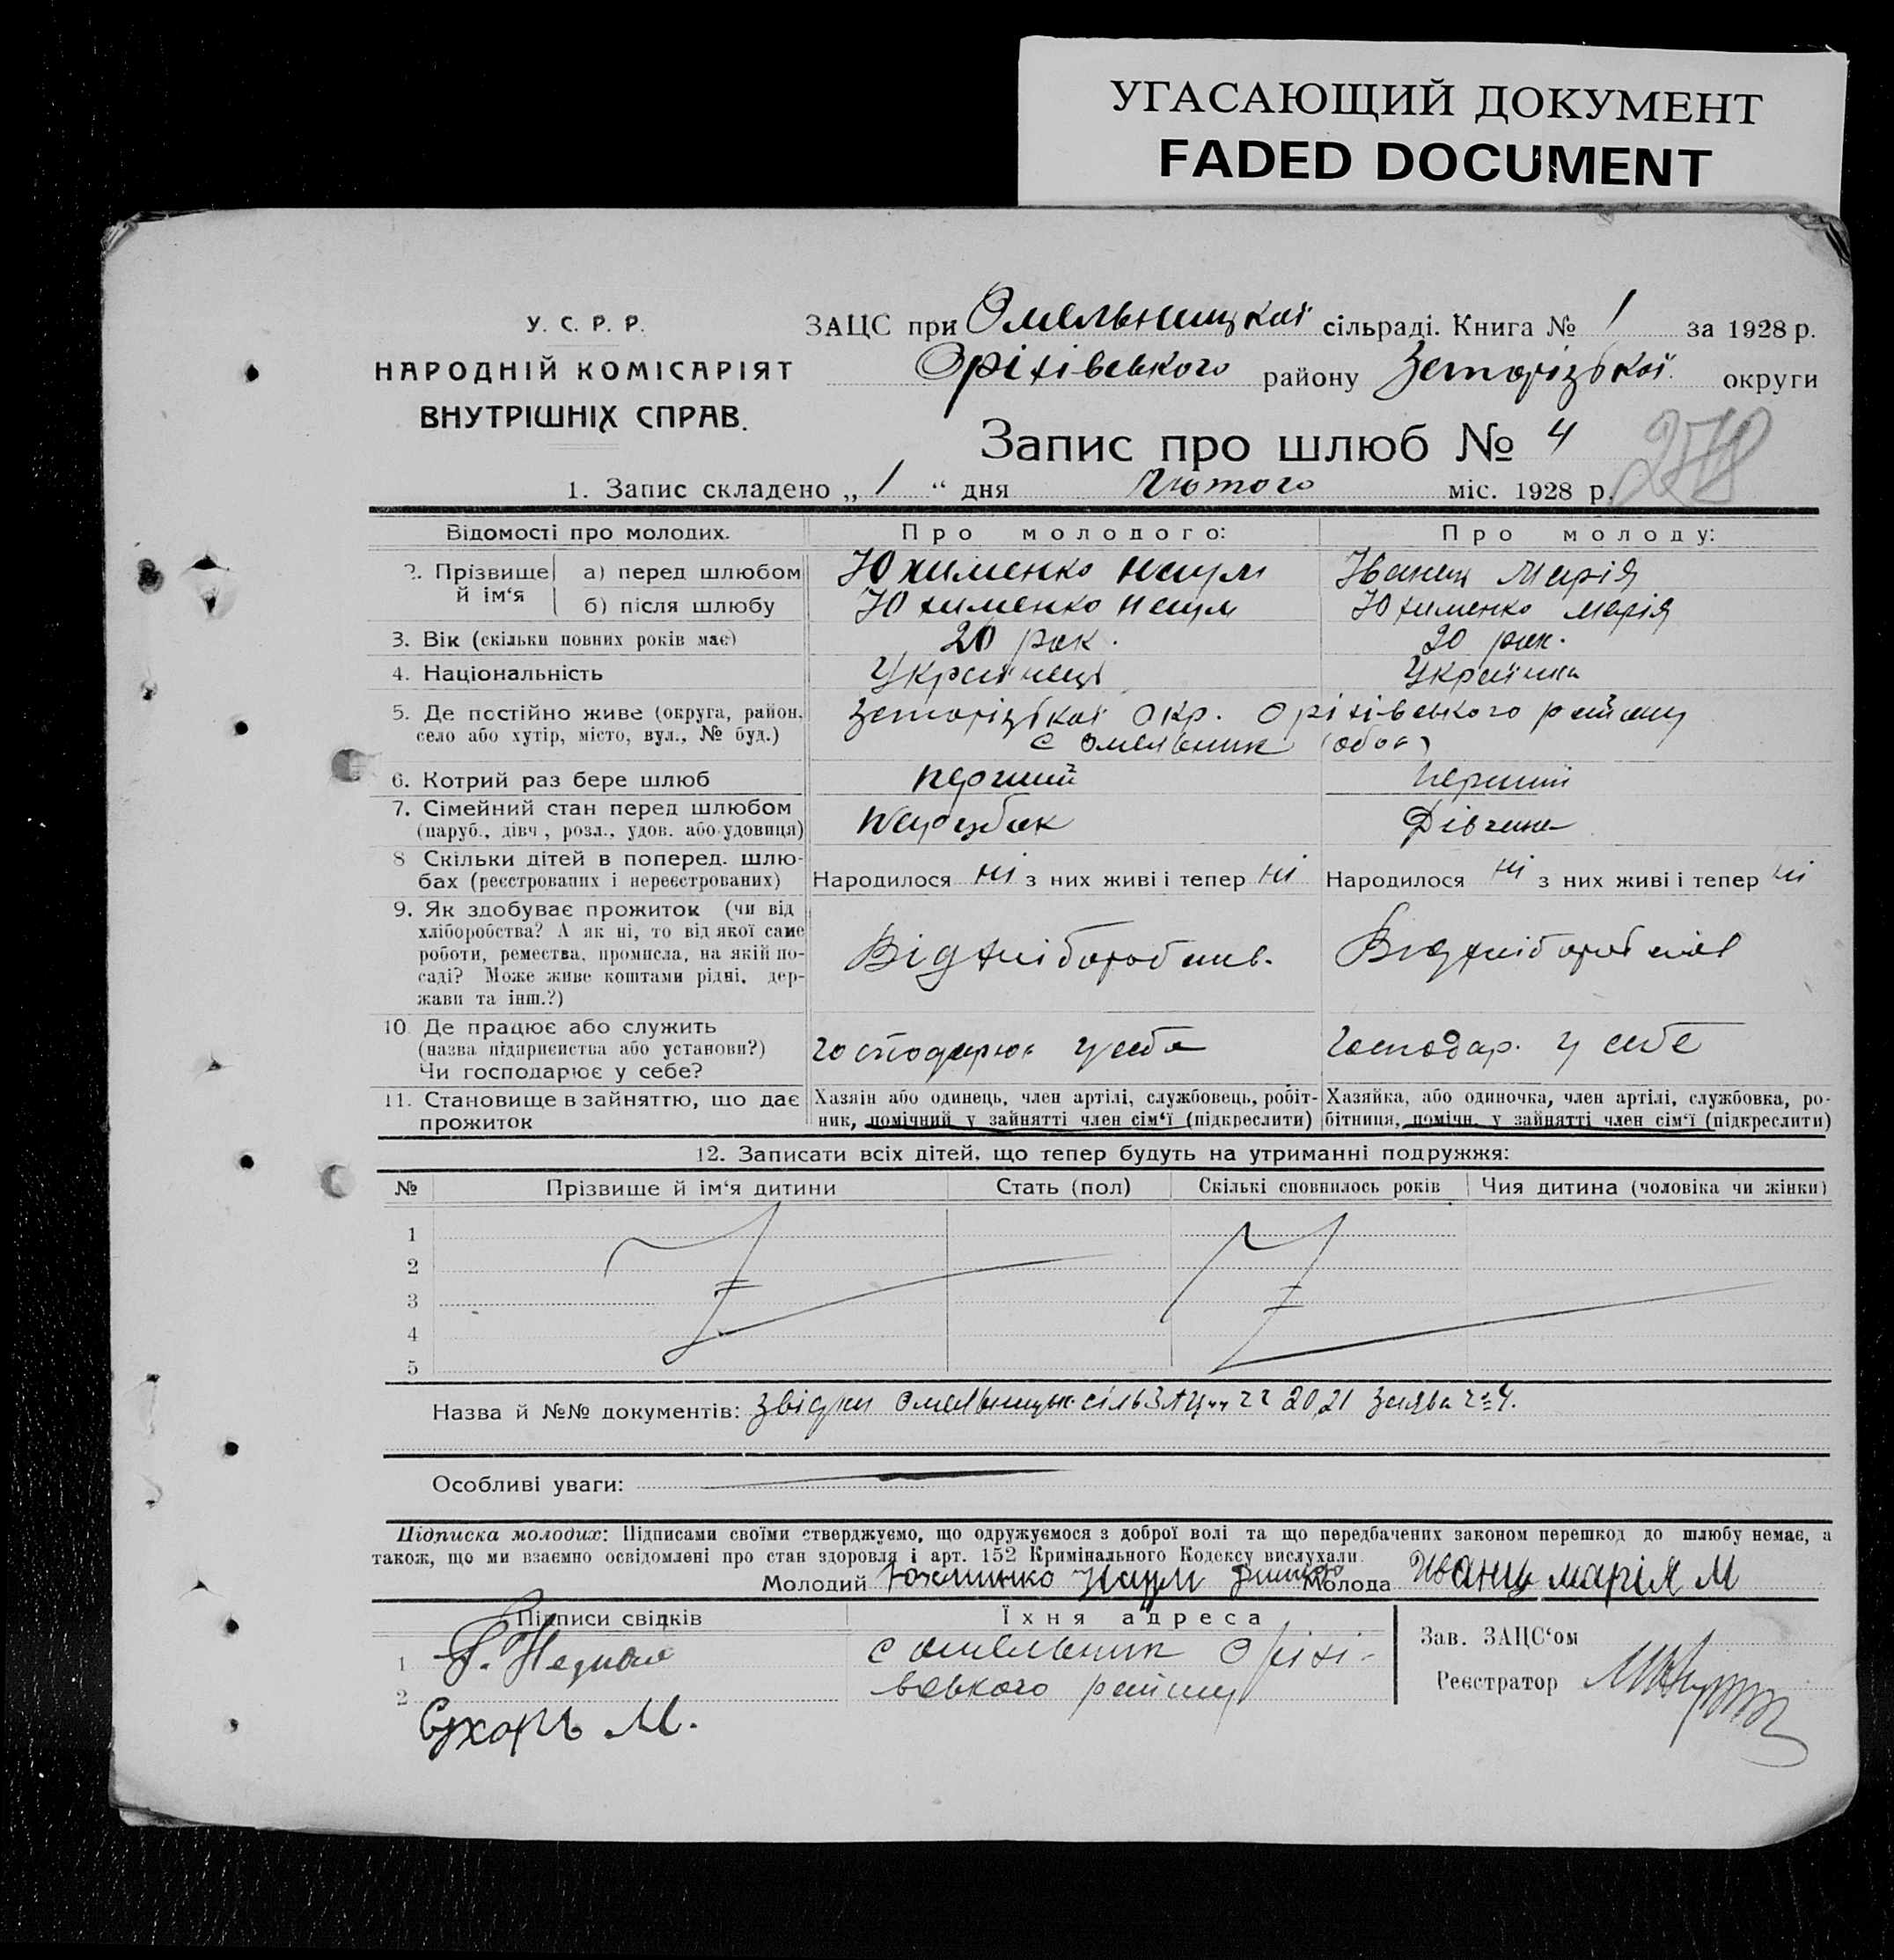 УГАСАЮЩИЙ ДОКУМЕНТ
FADED DOCUMENT
У. С. Р. Р.
НАРОДНІЙ КОМІСАРІЯТ
ВНУТРІШНІХ СПРАВ.
ЗАЦС при Омельницкої сільраді. Книга № 1 за 1928 р.
Оріхівського району Запорізької округи
Запис про шлюб № 4
278
1. Запис складено „ 1 “ дня Лютого міс. 1928 р.
Відомості про молодих. Про молодого: Про молоду:
2. Прізвище й ім‘я а) перед шлюбом Юхименко Наум Іванец Марія
б) після шлюбу Юхименко Наум Юхименко Марія
3. Вік (скільки повних років має) 20 рок. 20 рок.
4. Національність Українець Українка
5. Де постійно живе (округа, район, село або хутір, місто, вул., № буд.) Запорізької Окр. Оріхівського району
с Омельник (обоє)
6. Котрий раз бере шлюб перший перший
7. Сімейний стан перед шлюбом
(паруб., дівч., розл., удов. або удовиця) Парубок Дівчина
8 Скільки дітей в поперед. шлю-
бах (реєстрованих і нереєстрованих) Народилося ні з них живі і тепер ні Народилося ні з них живі і тепер ні
9. Як здобуває прожиток (чи від
хліборобства? А як ні, то від якої саме
роботи, ремества, промисла, на якій по-
саді? Може живе коштами рідні, дер-
жави та інш.?) Від хліборобств. Від хліборобства
10. Де працює або служить
(назва підприємства або установи?)
Чи господарює у себе? господарює у себе господар. у себе
11. Становище в зайняттю, що дає
прожиток
Хазяїн або одинець, член артілі, службовець, робіт-
ник, помічний у зайнятті член сім‘ї (підкреслити)
Хазяйка, або одиночка, член артілі, службовка, ро-
бітниця, помічн. у зайнятті член сім‘ї (підкреслити)
12. Записати всіх дітей, що тепер будуть на утриманні подружжя:
№ Прізвише й ім‘я дитини Стать (пол) Скількі сповнилось років Чия дитина (чоловіка чи жінки)
1
2
3
4
5
Назва й №№ документів: звідки Омельницьк. сільЗАЦу 20, 21 заява ч 4.
Особливі уваги:
Підписка молодих: Підписами своїми стверджуємо, що одружуємося з доброї волі та що передбачених законом перешкод до шлюбу немає, а
також, що ми взаємно освідомлені про стан здоровля і арт. 152 Кримінального Кодексу вислухали.
Молодий Юхименко Наум Молода Іванець Марія М
Підписи свідків Їхня адреса
1 с Омельник Оріхі-
2 вського району
Сухарь М.
Зав. ЗАЦС‘ом
Реєстратор